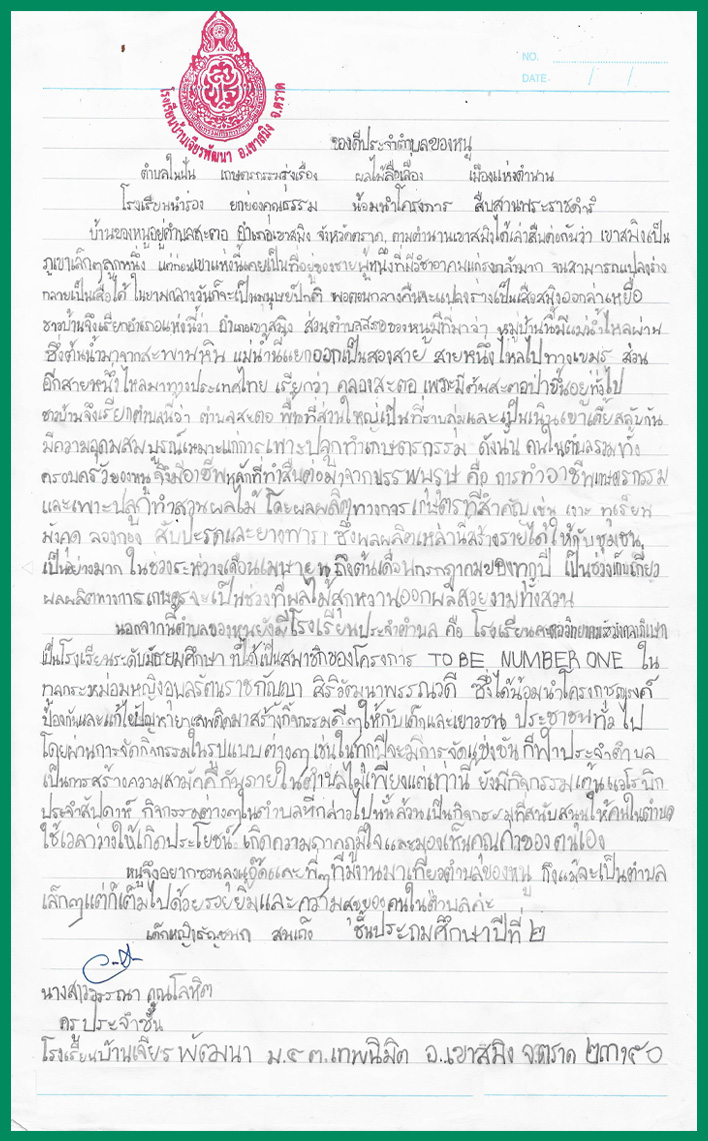 NO.
DATE / /
โรงเรียนบ้านเจียรพัฒนา อ.เขาสมิง จ.ตราด
ของดีประจำตำบลของหนู
ตำบลในฝัน เกษตรกรรมรุ่งเรือง ผลไม้ลือเลื่อง เมืองแห่งตำนาน
โรงเรียนนำร่อง ยกย่องคุณธรรม น้อมนำโครงการ สืบสานพระราชดำริ
บ้านของหนูอยู่ตำบลสะตอ อำเภอเขาสมิง จังหวัดตราด ตามตำนานเขาสมิงได้เล่าสืบต่อกันว่า เขาสมิงเป็น
ภูเขาเล็กๆลูกหนึ่ง แต่ก่อนเขาแห่งนี้เคยเป็นที่อยู่ของชายผู้หนึ่งที่มีวิชาอาคมแก่งกล้ามาก จนสามารถแปลงร่าง
กลายเป็นเสือได้ ในยามกลางวันก็จะเป็นมนุษย์ปกติ พอตอนกลางคืนจะแปลงร่างเป็นเสือสมิงออกล่าเหยื่อ
ชาวบ้านจึงเรียกอำเภอแห่งนี้ว่า อำเภอเขาสมิง ส่วนตำบลสะตอของหนูมีที่มาว่า หมู่บ้านที่มีแม่น้ำไหลผ่าน
ซึ่งต้นน้ำมาจากสะพานหิน แม่น้ำนี้แยกออกเป็นสองสาย สายหนึ่งไหลไปทางเขมร ส่วน
อีกสายหนึ่งไหลมาทางประเทศไทย เรียกว่า คลองสะตอ เพราะมีต้นสะตอป่าขึ้นอยู่ทั่วไป
ชาวบ้านจึงเรียกตำบลนี้ว่า ตำบลสะตอ พื้นที่ส่วนใหญ่เป็นที่ราบลุ่มและเป็นเนินเขาเตี้ยสลับกัน
มีความอุดมสมบูรณ์เหมาะแก่การเพาะปลูกทำเกษตรกรรม ดังนั้น คนในตำบลรวมทั้ง
ครอบครัวของหนู จึงมีอาชีพหลักที่ทำสืบต่อมาจากบรรพบุรุษ คือ การทำอาชีพเกษตรกรรม
และเพาะปลูกทำสวนผลไม้ โดยผลผลิตทางการเกษตรที่สำคัญ เช่น เงาะ ทุเรียน
มังคุด ลองกอง สับปะรดและยางพารา ซึ่งผลผลิตเหล่านี้สร้างรายได้ให้กับชุมชน
เป็นอย่างมาก ในช่วงระหว่างเดือนเมษายน ถึงต้นเดือนกรกฎาคมของทุกปี เป็นช่วงเก็บเกี่ยว
ผลผลิตทางการเกษตรจะเป็นช่วงที่ผลไม้สุกหวานออกผลสวยงามทั้งสวน
นอกจากนี้ตำบลของหนูยังมีโรงเรียนประจำตำบล คือ โรงเรียน
เป็นโรงเรียนระดับมัธยมศึกษา ที่ได้เป็นสมาชิกของโครงการ TO BE NUMBER ONE ใน
ทูลกระหม่อมหญิงอุบลรัตนราชกัญญา สิริวัฒนาพรรณวดี ซึ่งได้น้อมนำโครงการรณรงค์
ป้องกันและแก้ไขปัญหายาเสพติดมาสร้างกิจกรรมดีๆให้กับเด็กและเยาวชน ประชาชนทั่วไป
โดยผ่านการจัดกิจกรรมในรูปแบบต่างๆ เช่นในทุกปีจะมีการจัดแข่งขันกีฬาประจำตำบล
เป็นการสร้างความสามัคคีกันภายในตำบลไม่เพียงแต่เท่านี้ ยังมีกิจกรรมเต้นแอโรบิก
ประจำสัปดาห์ กิจกรรมต่างๆในตำบลที่กล่าวไปนั้นล้วนเป็นกิจกรรมที่สนับสนุนให้คนในตำบล
ใช้เวลาว่างให้เกิดประโยชน์ เกิดความภาคภูมิใจและมองเห็นคุณค่าของตนเอง
หนูจึงอยากชวนลุงนู้ดและพี่ๆทีมงานมาเที่ยวตำบลของหนู ถึงแม้จะเป็นตำบล
เล็กๆแต่ก็เต็มไปด้วยรอยยิ้มและความสุขของคนในตำบลค่ะ
เด็กหญิงธัญชนก ชั้นประถมศึกษาปีที่ ๒
นางสาววรรณา คุณโลหิต
ครูประจำชั้น
โรงเรียนบ้านเจียรพัฒนา ม.๔ ต.เทพนิมิต อ.เขาสมิง จ.ตราด ๒๓๑๕๐